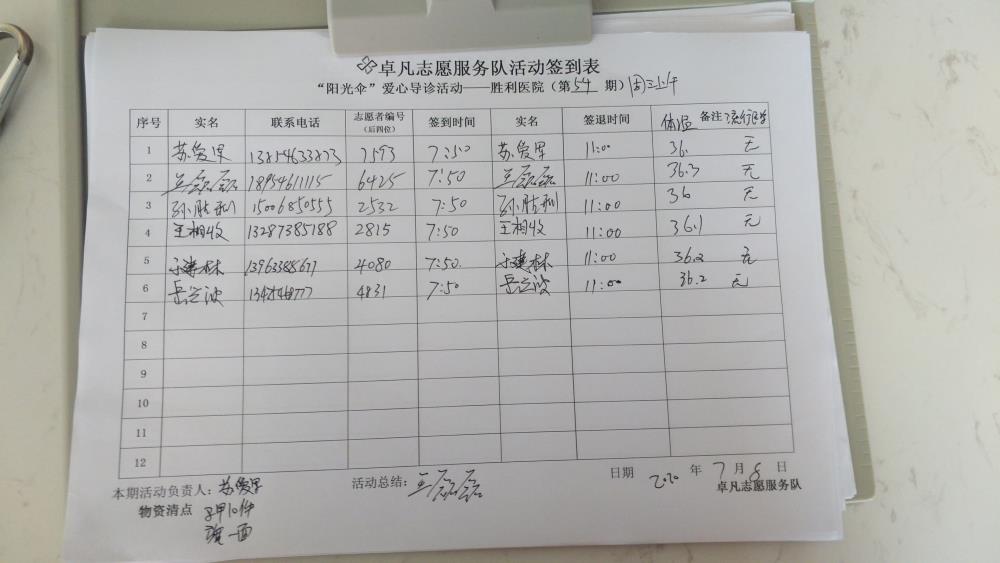 卓凡志愿服务队活动签到表
“阳光伞”爱心导诊活动——胜利医院（第54期）周三上午
序号 实名 联系电话 志愿者编号（后四位） 签到时间 实名 签退时间 体温 备注 流行病学
1 苏爱军 13854633873 7593 7:50 苏爱军 11:00 36. 无
2 王磊磊 18954611115 6425 7:50 王磊磊 11:00 36.3 无
3 孙胜利 15006850555 2532 7:50 孙胜利 11:00 36 无
4 王相收 13287385188 2815 7:50 王相收 11:00 36.1 无
5 于建林 13963388677 4080 7:50 于建林 11:00 36.2 无
6 岳立波 4831 7:50 岳立波 11:00 36.2 无
7
8
9
10
11
12
本期活动负责人：苏爱军 活动总结：王磊磊 日期 2020 年 7 月 8 日
物资清点 马甲10件 卓凡志愿服务队
旗一面